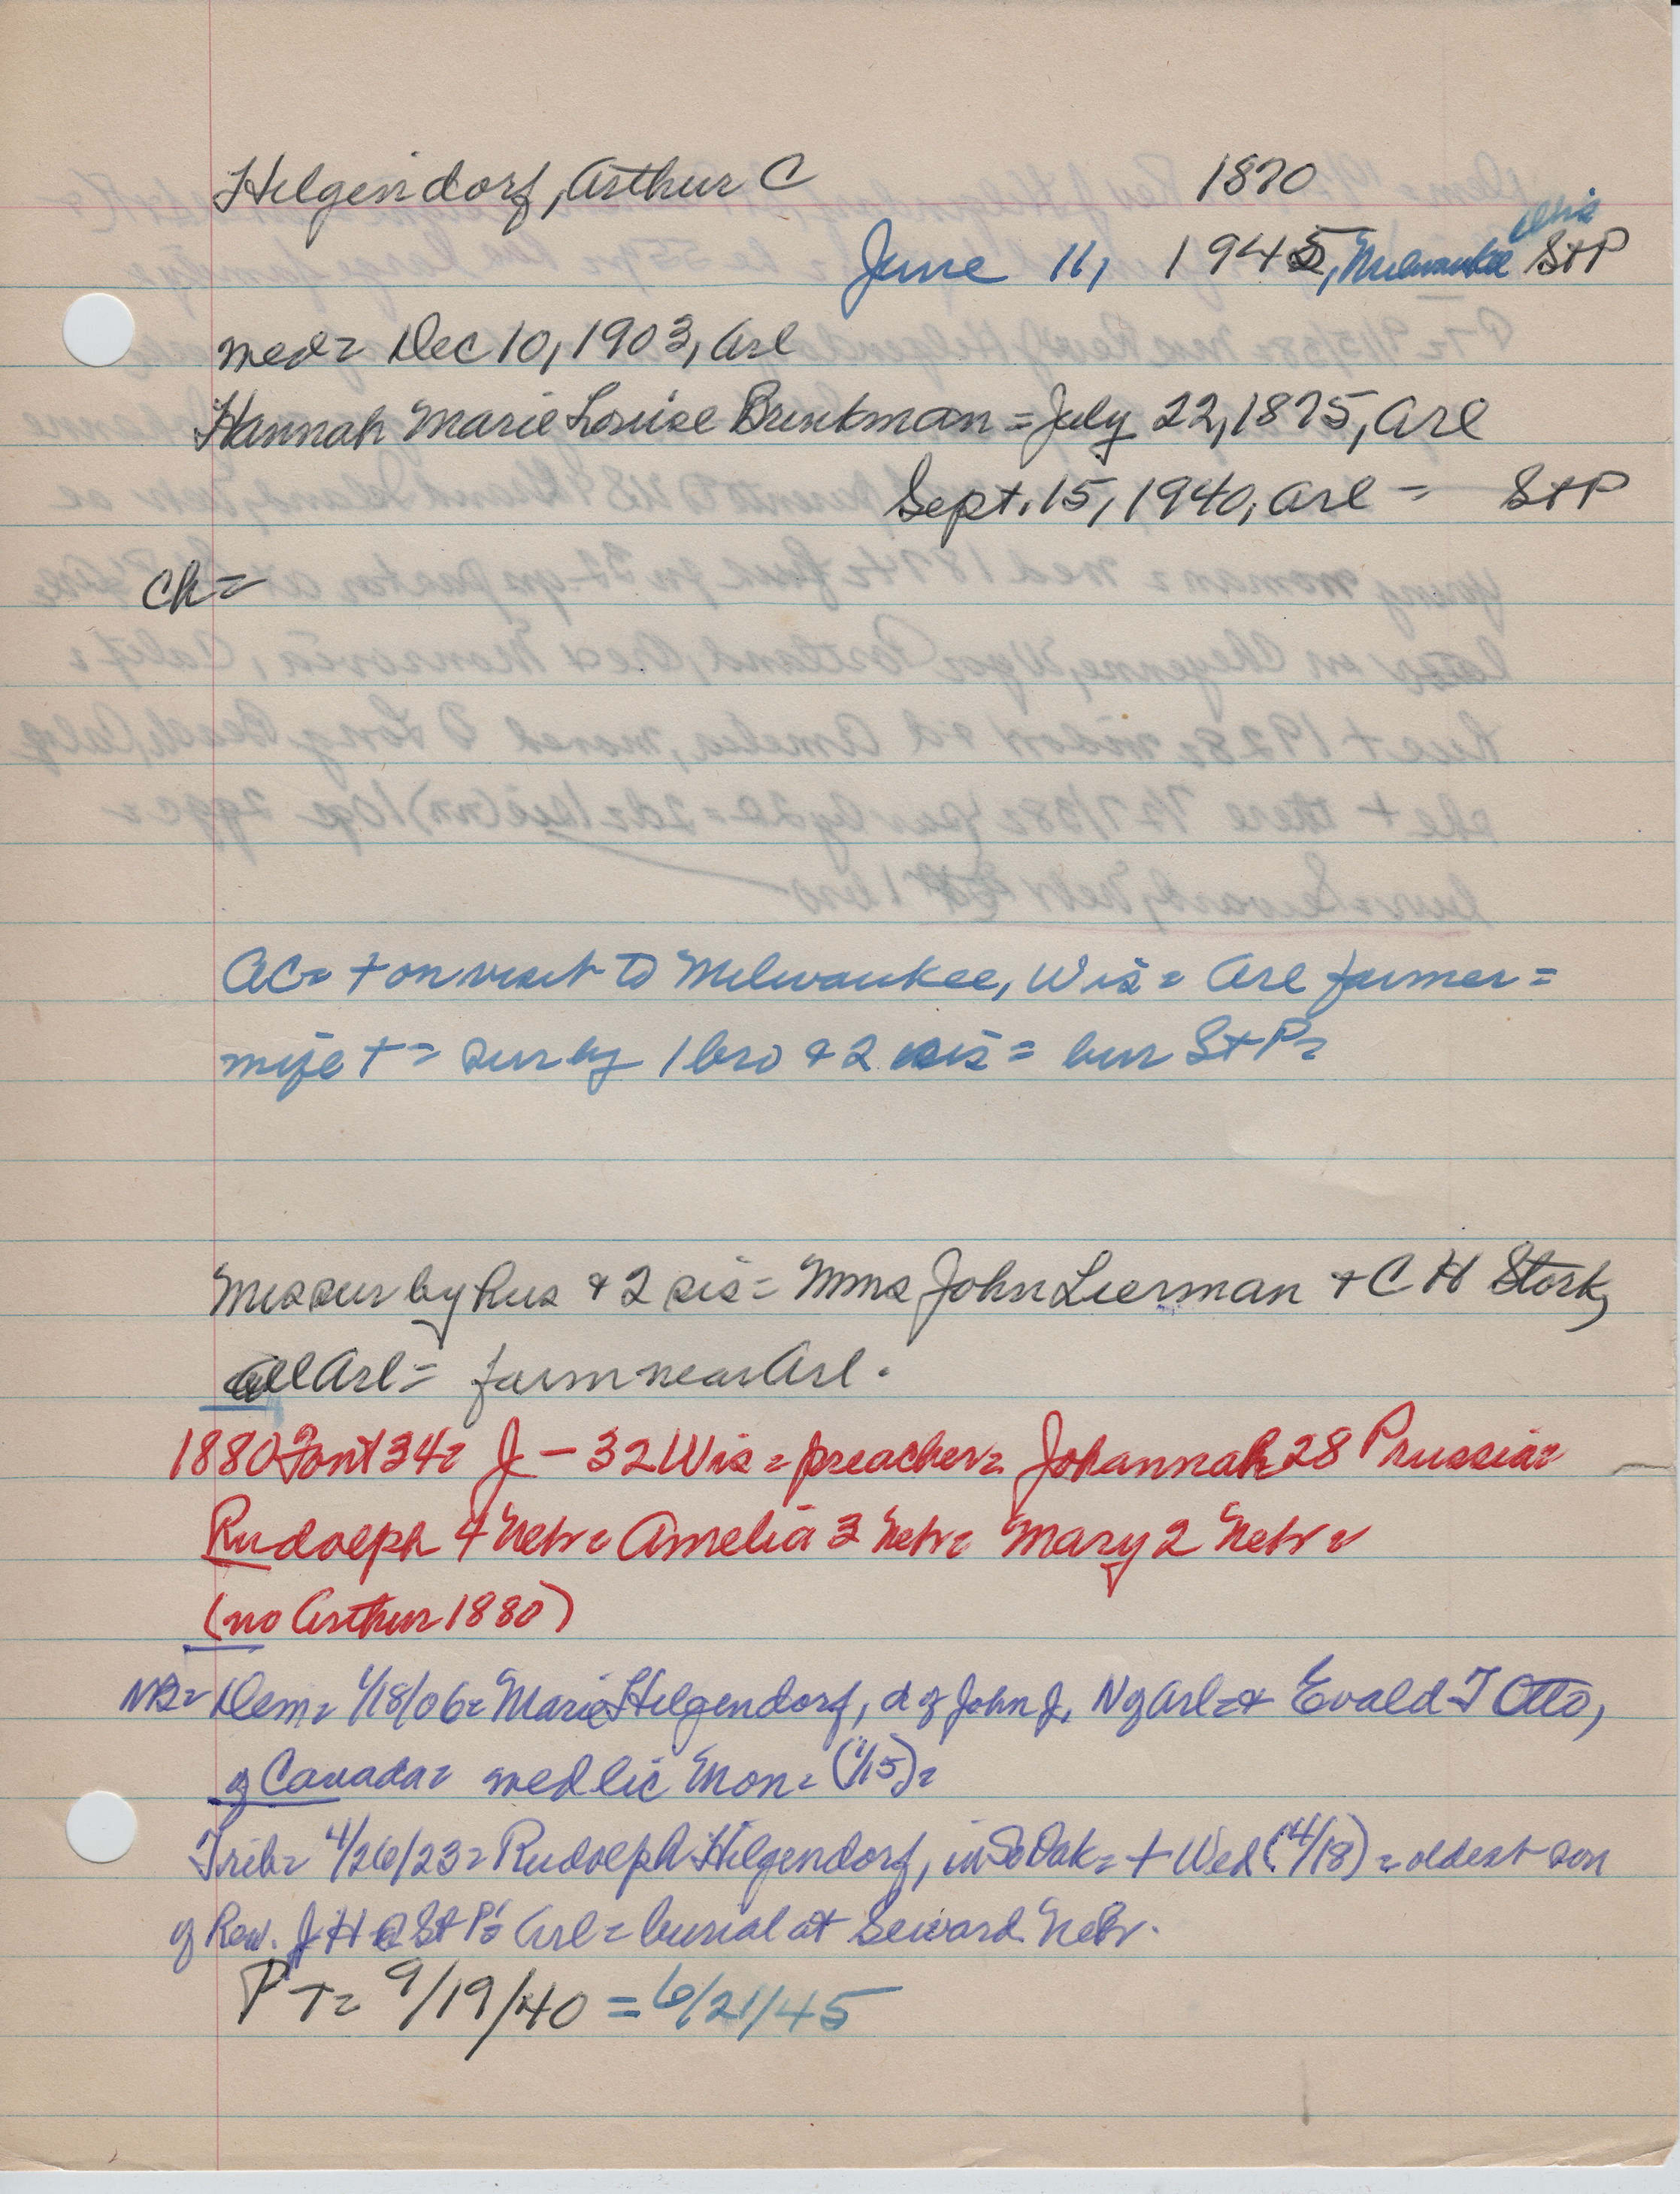 Hilgendorf, Arthur C 1870
June 11, 1945, Milwaukee Wis St P
med= Dec 10, 1903, Arl
Hannah Marie Louise Brinkman = July 22, 1875, Arl
Sept. 15, 1940, Arl = St P
Ch=
AC= + on visit to Milwaukee, Wis= Arl farmer=
wife += sur by 1 bro & 2 sis= bur St P=
Mrs sur by hus & 2 sis= Mms John Lierman + C H Stork,
all Arl= farm near Arl.
1880 Font 34= J - 32 Wis= preacher= Johannah 28 Prussia=
Rudolph 4 Nebr= Amelia 3 Nebr= Mary 2 Nebr=
(no Arthur 1880)
NB= Dem= 1/18/06= Marie Hilgendorf, d of John J, N of Arl= + Evald T Otto,
of Canada= wed lic Mon= (1/15)=
Trib= 4/26/23= Rudolph Hilgendorf, in SoDak= + Wed (4/18)= oldest son
of Rev. J H @ St P's Arl= burial at Seward Nebr.
PT= 9/19/40 = 6/21/45